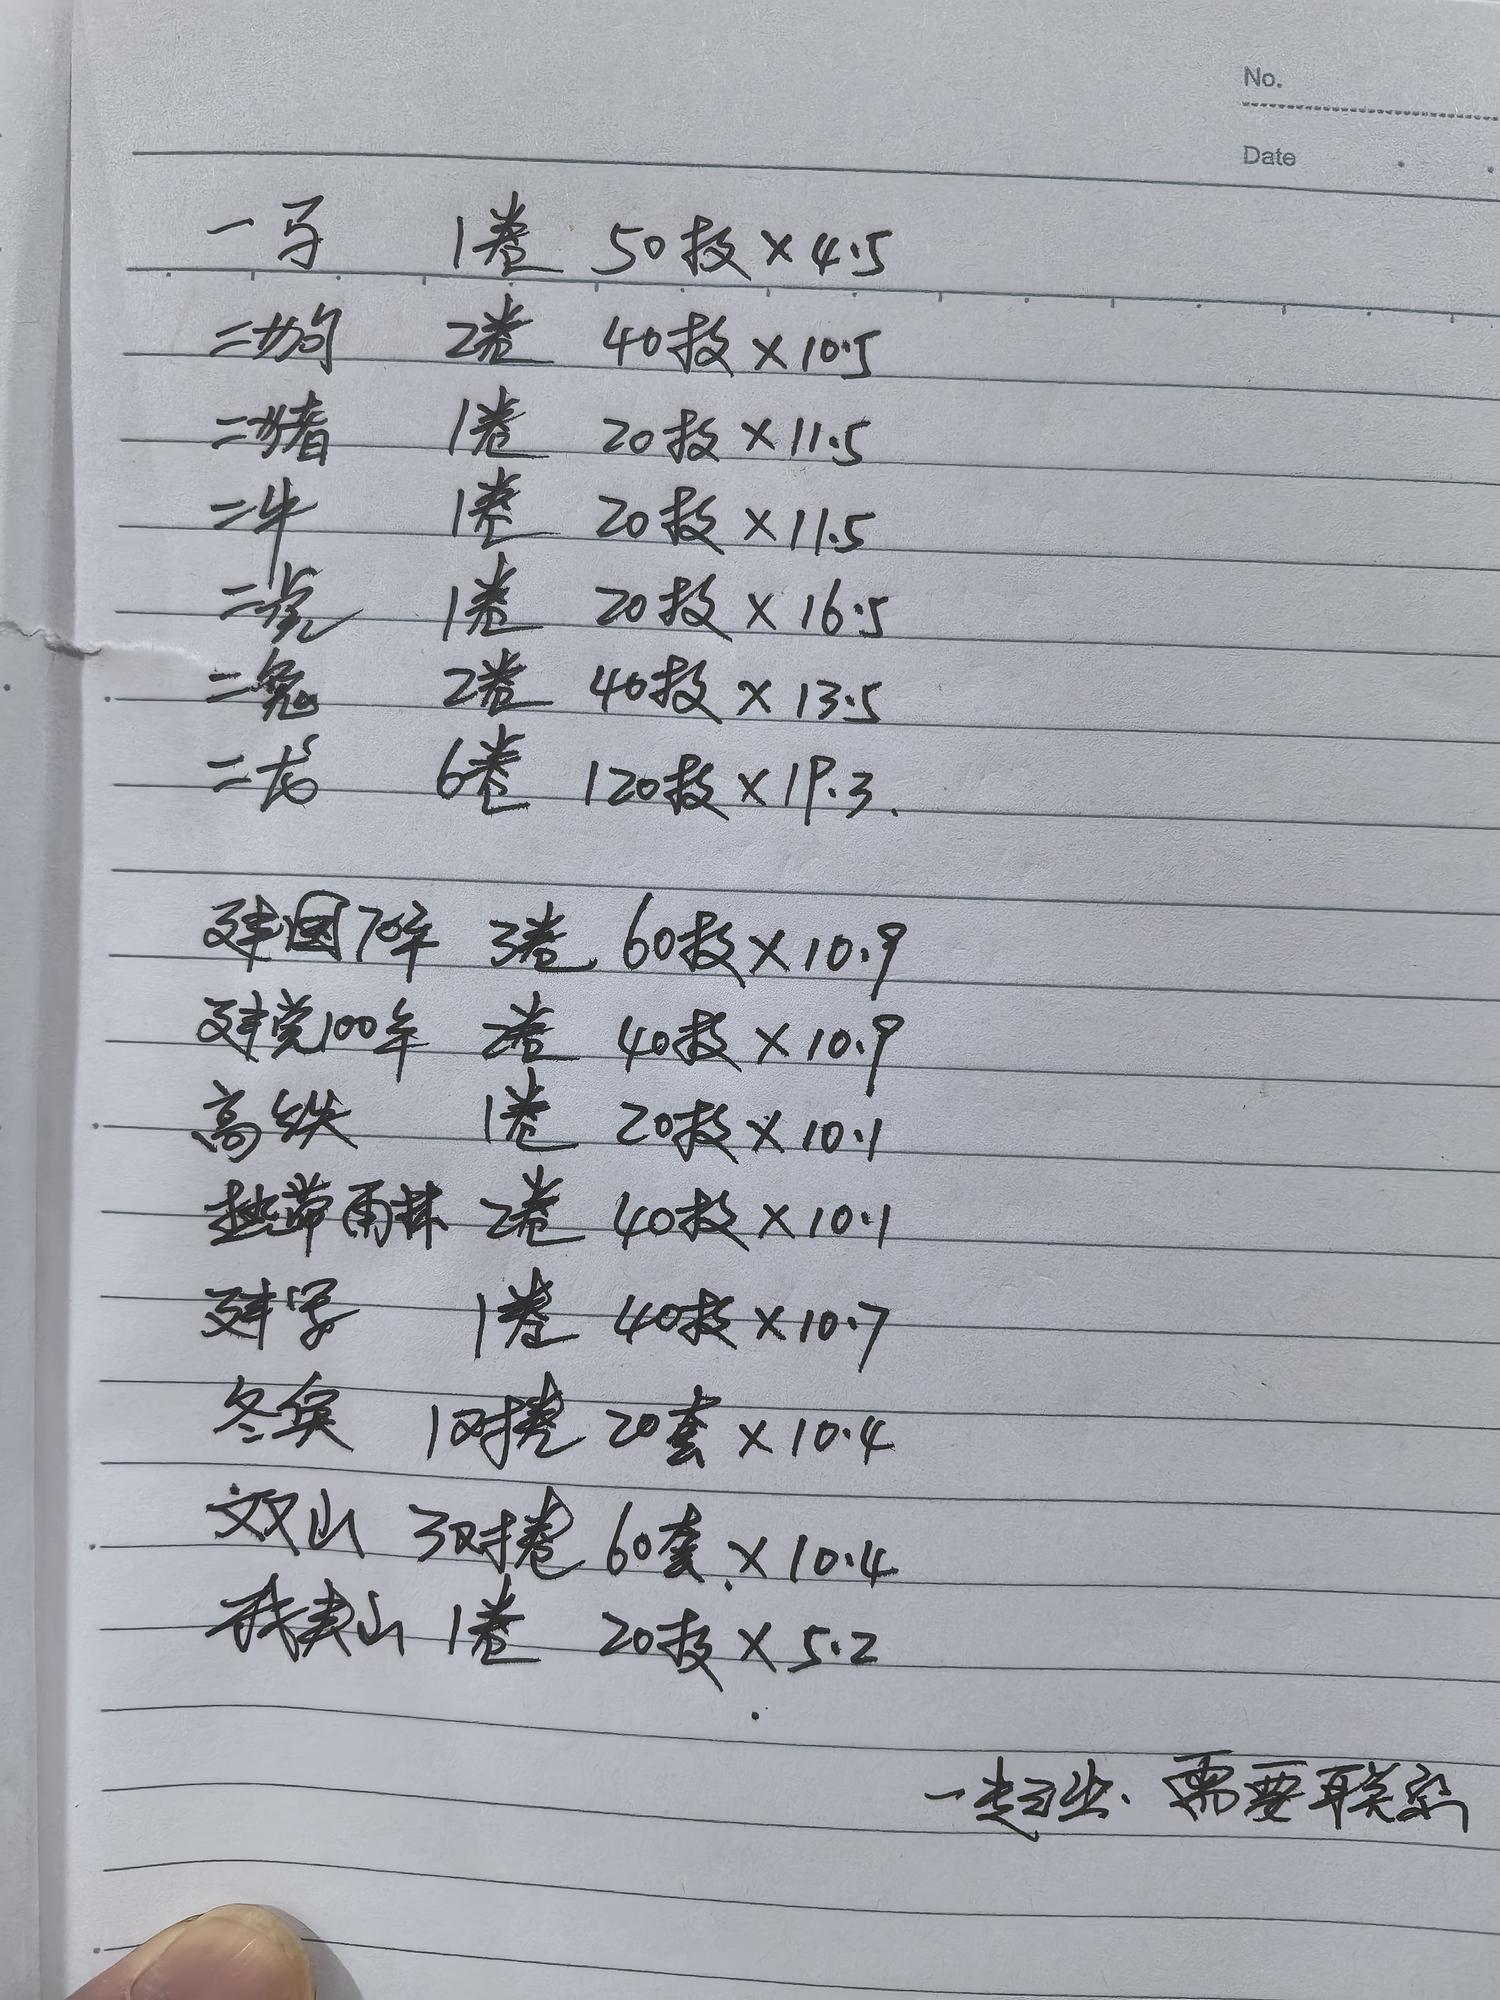 No.
Date
一马 1卷 50枚×4.5
二狗 2卷 40枚×10.5
二猪 1卷 20枚×11.5
二牛 1卷 20枚×11.5
二虎 1卷 20枚×16.5
二兔 2卷 40枚×13.5
二龙 6卷 120枚×19.3.
建国70年 3卷 60枚×10.9
建党100年 2卷 40枚×10.9
高铁 1卷 20枚×10.1
热带雨林 2卷 40枚×10.1
建军 1卷 40枚×10.7
冬奥 1对捲 20套×10.4
双山 3对捲 60套×10.4
武夷山 1卷 20枚×5.2
一起出、需要联系